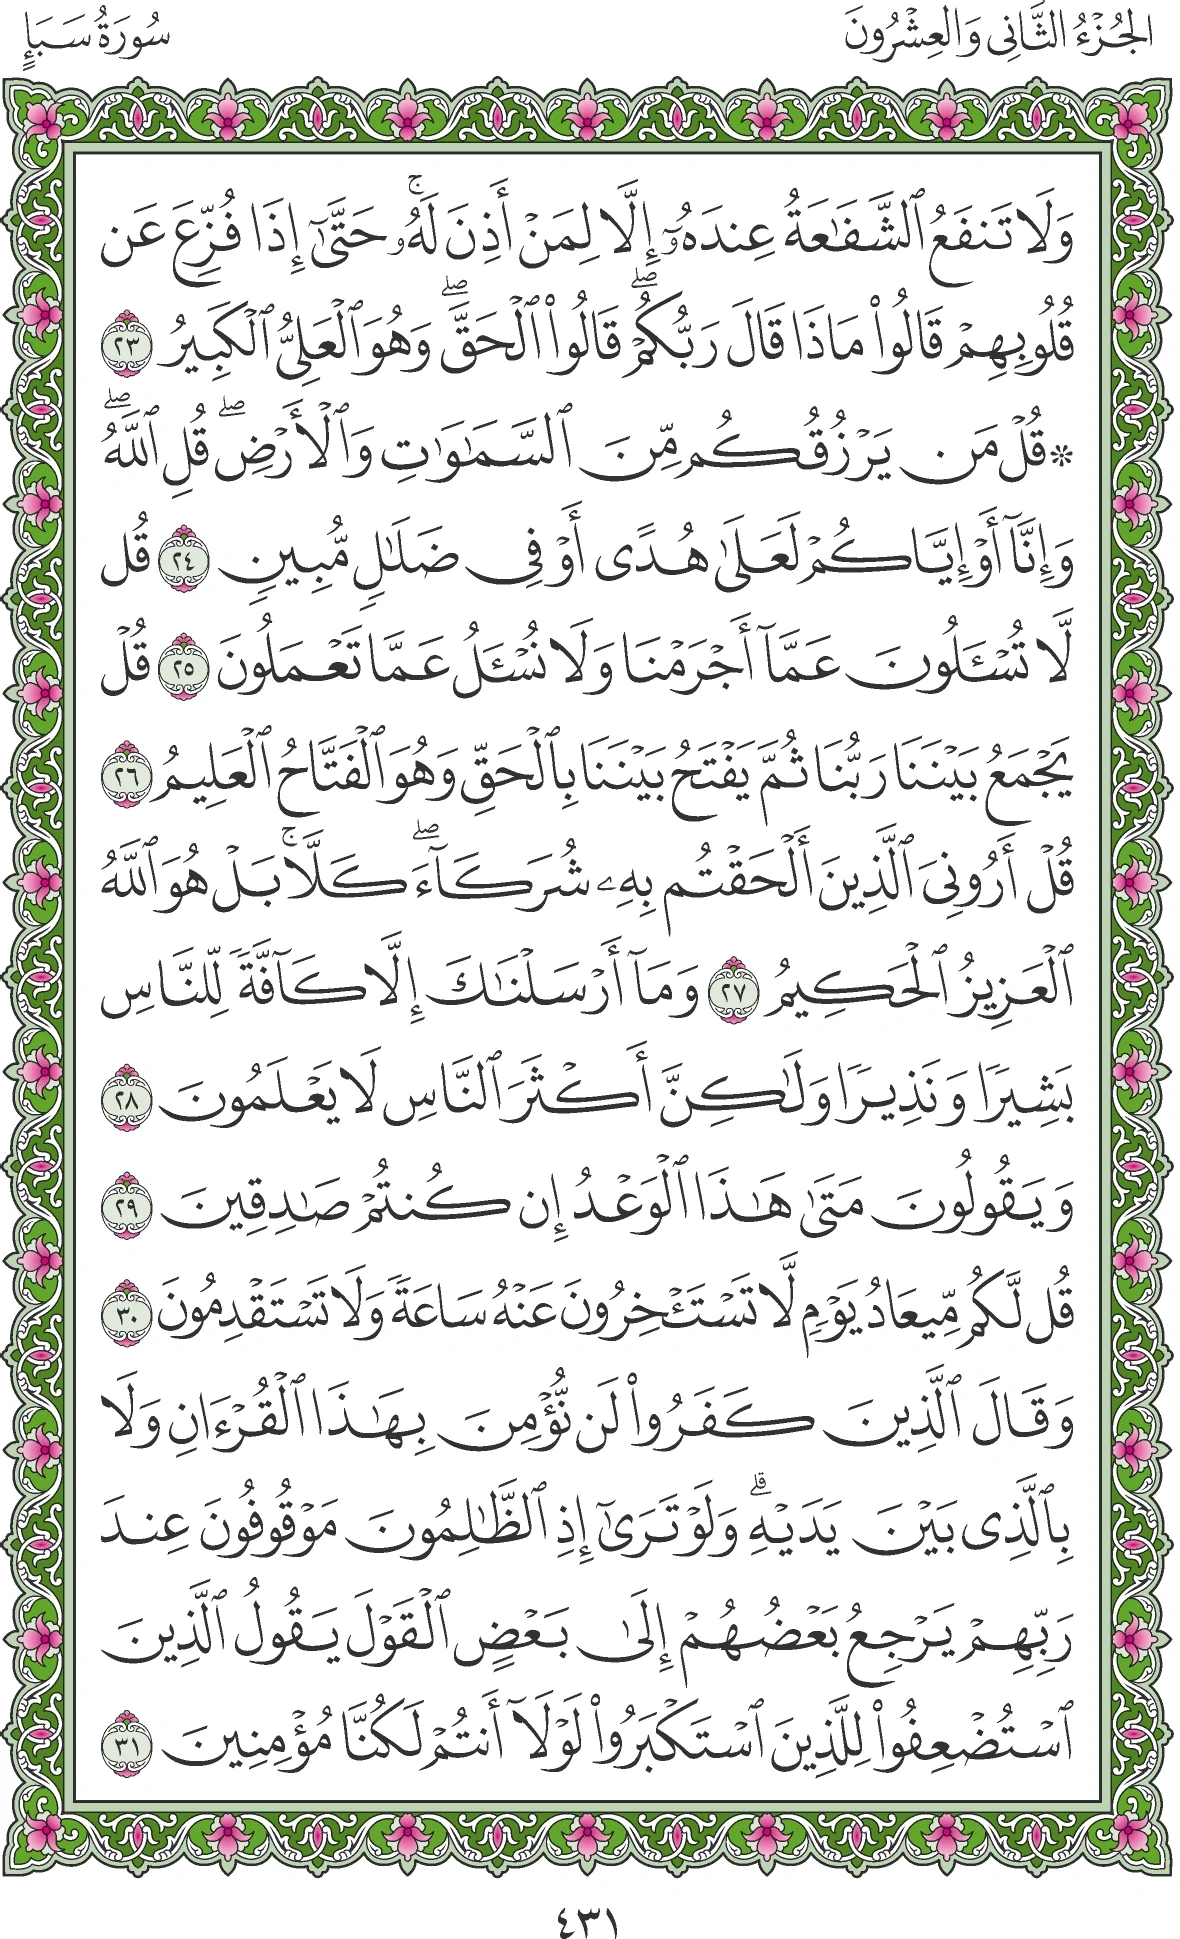 الجُزْءُ الثَّانِي وَالْعِشْرُونَ
سُورَةُ سَبَإٍ
وَلَا تَنفَعُ ٱلشَّفَٰعَةُ عِندَهُۥٓ إِلَّا لِمَنْ أَذِنَ لَهُۥۚ حَتَّىٰٓ إِذَا فُزِّعَ عَن
قُلُوبِهِمْ قَالُوا۟ مَاذَا قَالَ رَبُّكُمْۖ قَالُوا۟ ٱلْحَقَّۖ وَهُوَ ٱلْعَلِىُّ ٱلْكَبِيرُ ٢٣
۞ قُلْ مَن يَرْزُقُكُم مِّنَ ٱلسَّمَٰوَٰتِ وَٱلْأَرْضِۖ قُلِ ٱللَّهُۖ
وَإِنَّآ أَوْ إِيَّاكُمْ لَعَلَىٰ هُدًى أَوْ فِى ضَلَٰلٍ مُّبِينٍ ٢٤ قُل
لَّا تُسْـَٔلُونَ عَمَّآ أَجْرَمْنَا وَلَا نُسْـَٔلُ عَمَّا تَعْمَلُونَ ٢٥ قُلْ
يَجْمَعُ بَيْنَنَا رَبُّنَا ثُمَّ يَفْتَحُ بَيْنَنَا بِٱلْحَقِّ وَهُوَ ٱلْفَتَّاحُ ٱلْعَلِيمُ ٢٦
قُلْ أَرُونِىَ ٱلَّذِينَ أَلْحَقْتُم بِهِۦ شُرَكَآءَۖ كَلَّاۚ بَلْ هُوَ ٱللَّهُ
ٱلْعَزِيزُ ٱلْحَكِيمُ ٢٧ وَمَآ أَرْسَلْنَٰكَ إِلَّا كَآفَّةً لِّلنَّاسِ
بَشِيرًا وَنَذِيرًا وَلَٰكِنَّ أَكْثَرَ ٱلنَّاسِ لَا يَعْلَمُونَ ٢٨
وَيَقُولُونَ مَتَىٰ هَٰذَا ٱلْوَعْدُ إِن كُنتُمْ صَٰدِقِينَ ٢٩
قُل لَّكُم مِّيعَادُ يَوْمٍ لَّا تَسْتَـْٔخِرُونَ عَنْهُ سَاعَةً وَلَا تَسْتَقْدِمُونَ ٣٠
وَقَالَ ٱلَّذِينَ كَفَرُوا۟ لَن نُّؤْمِنَ بِهَٰذَا ٱلْقُرْءَانِ وَلَا
بِٱلَّذِى بَيْنَ يَدَيْهِۗ وَلَوْ تَرَىٰٓ إِذِ ٱلظَّٰلِمُونَ مَوْقُوفُونَ عِندَ
رَبِّهِمْ يَرْجِعُ بَعْضُهُمْ إِلَىٰ بَعْضٍ ٱلْقَوْلَ يَقُولُ ٱلَّذِينَ
ٱسْتُضْعِفُوا۟ لِلَّذِينَ ٱسْتَكْبَرُوا۟ لَوْلَآ أَنتُمْ لَكُنَّا مُؤْمِنِينَ ٣١
٤٣١